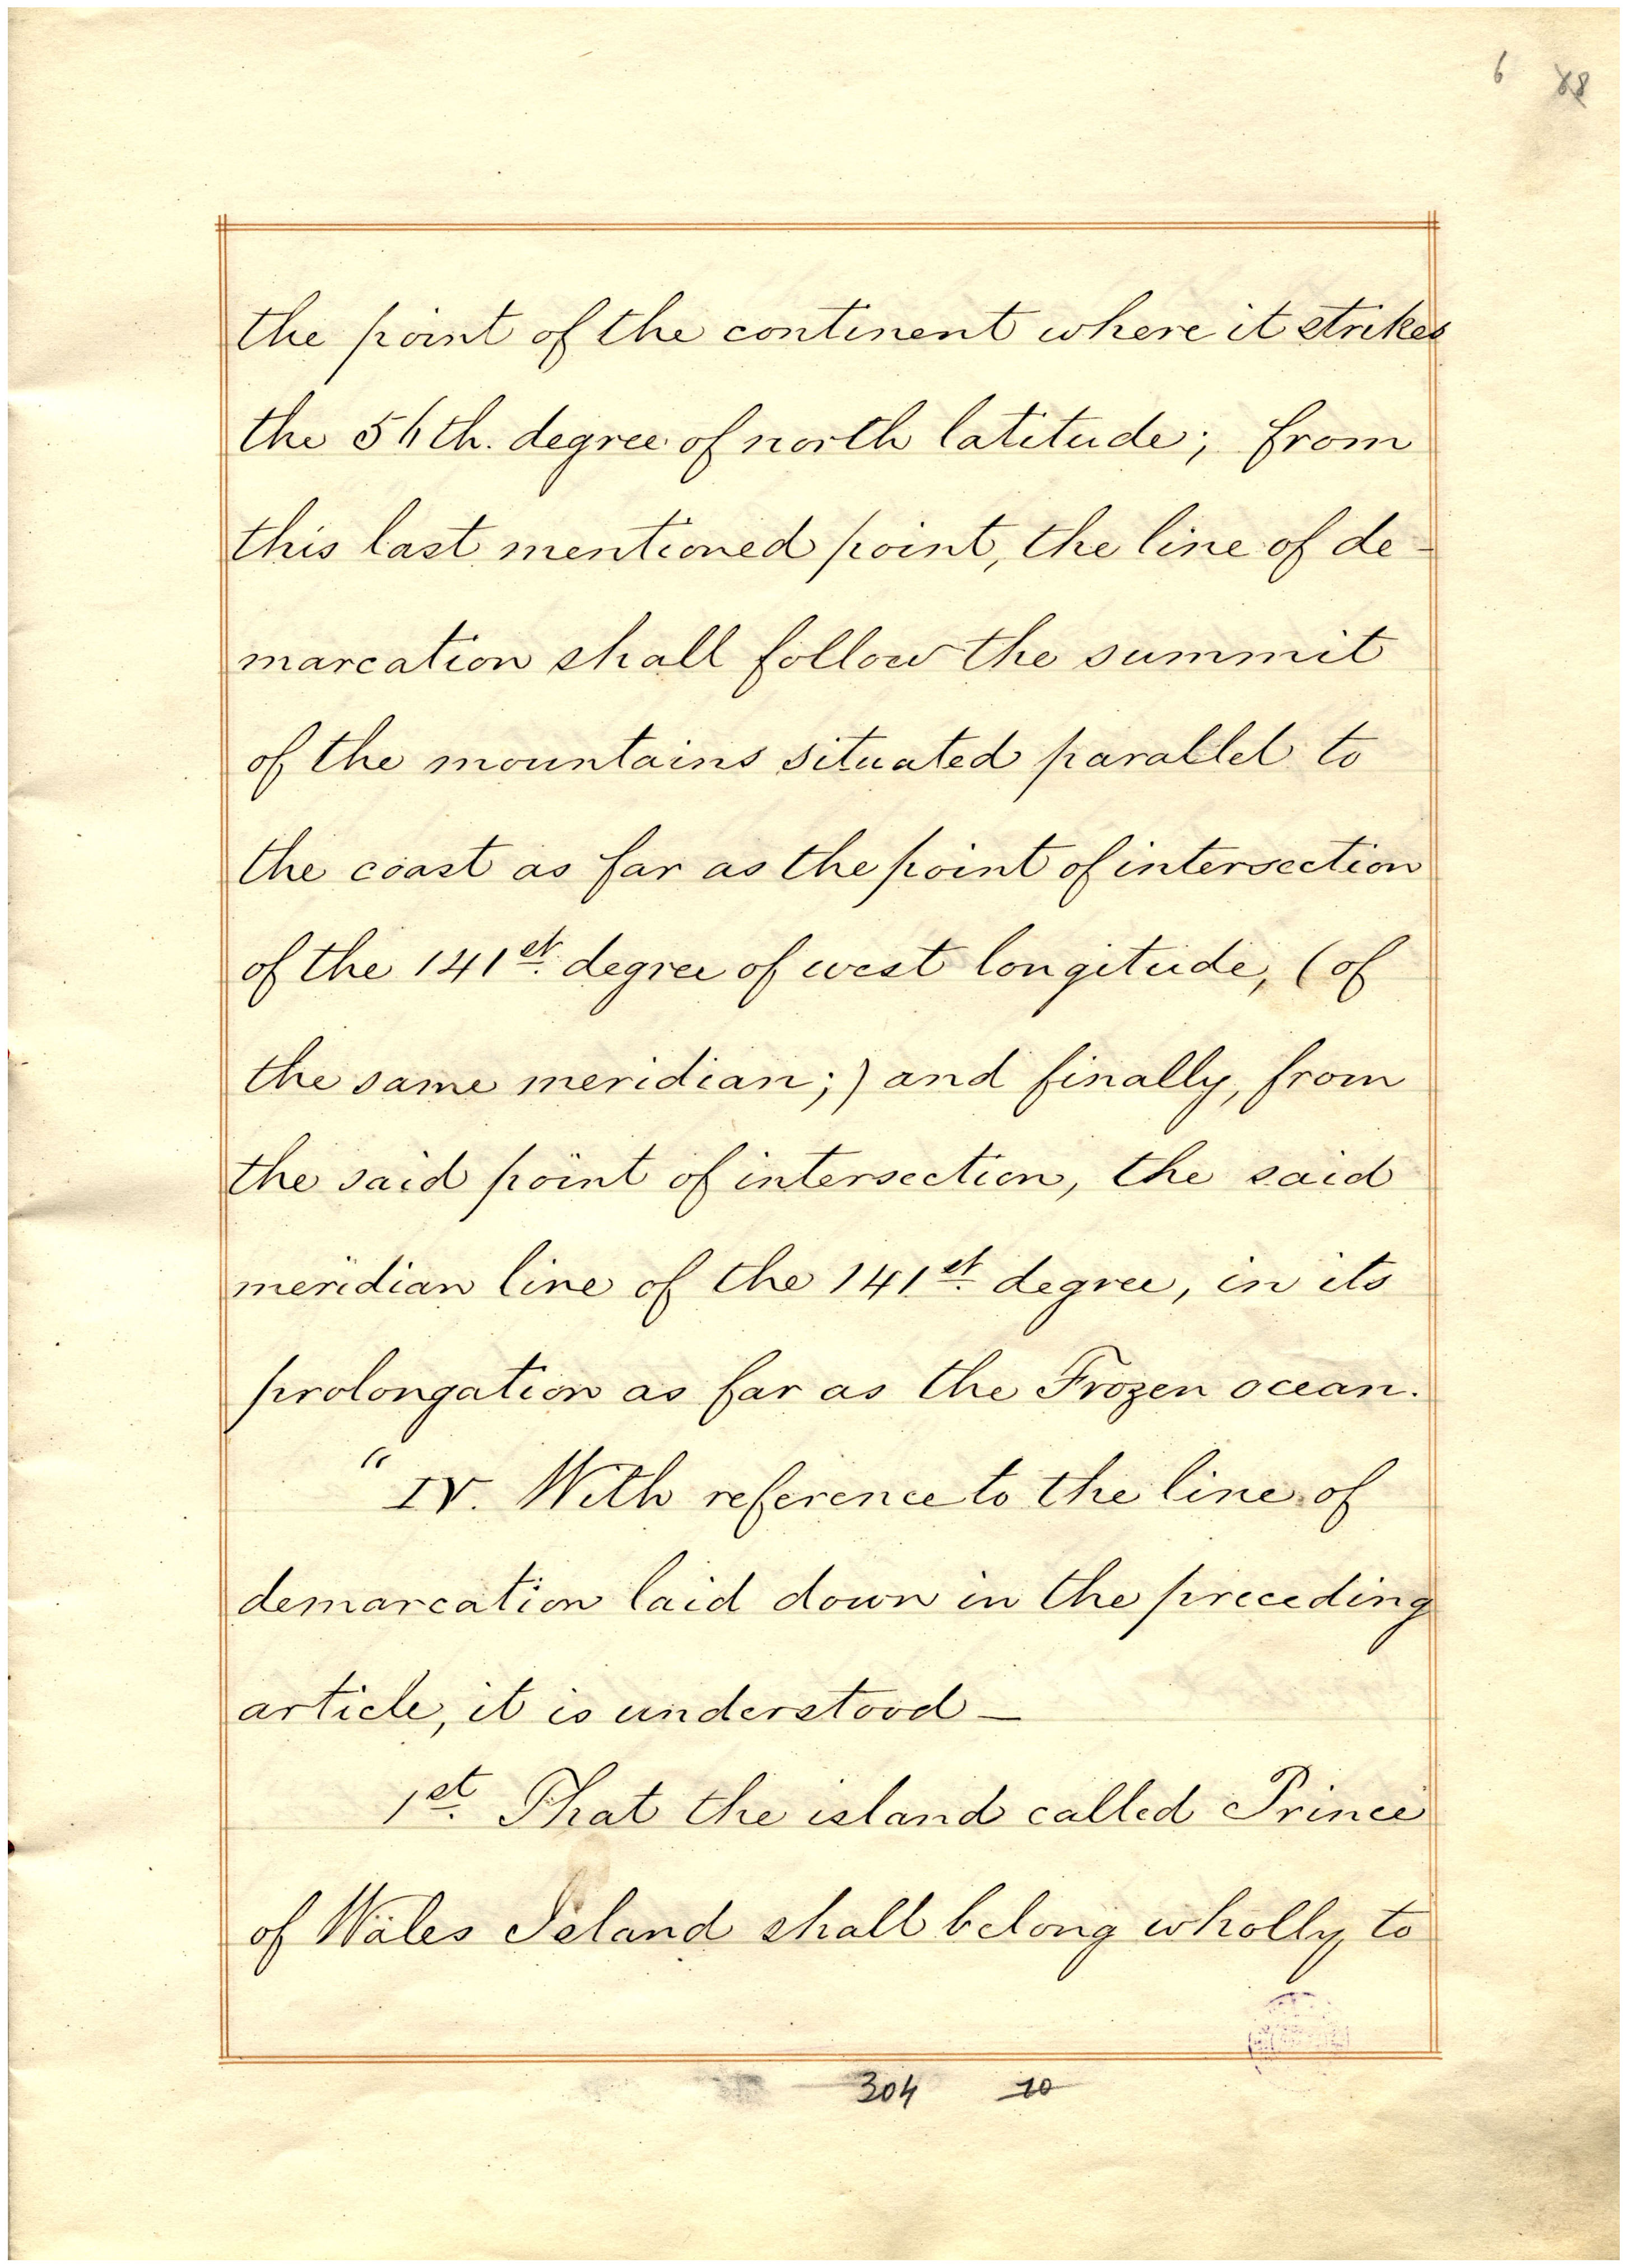 6 88
the point of the continent where it strikes
the 56th. degree of north latitude; from
this last mentioned point, the line of de-
marcation shall follow the summit
of the mountains situated parallel to
the coast as far as the point of intersection
of the 141st. degree of west longitude, (of
the same meridian;) and finally, from
the said point of intersection, the said
meridian line of the 141st. degree, in its
prolongation as far as the Frozen ocean.
" IV. With reference to the line of
demarcation laid down in the preceding
article, it is understood —
1st. That the island called Prince
of Wales Island shall belong wholly to
304 10